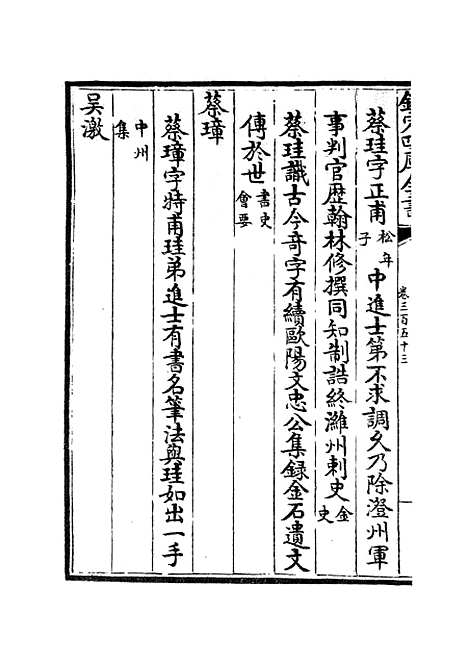 欽定四庫全書
卷三百五十三
蔡珪字正甫松年子中進士第不求調久乃除澄州軍
事判官歷翰林修撰同知制誥終濰州刺史金史
蔡珪識古今奇字有續歐陽文忠公集錄金石遺文
傳於世書史會要
蔡璋
蔡璋字特甫珪弟進士有書名筆法與珪如出一手
中州集
吳激